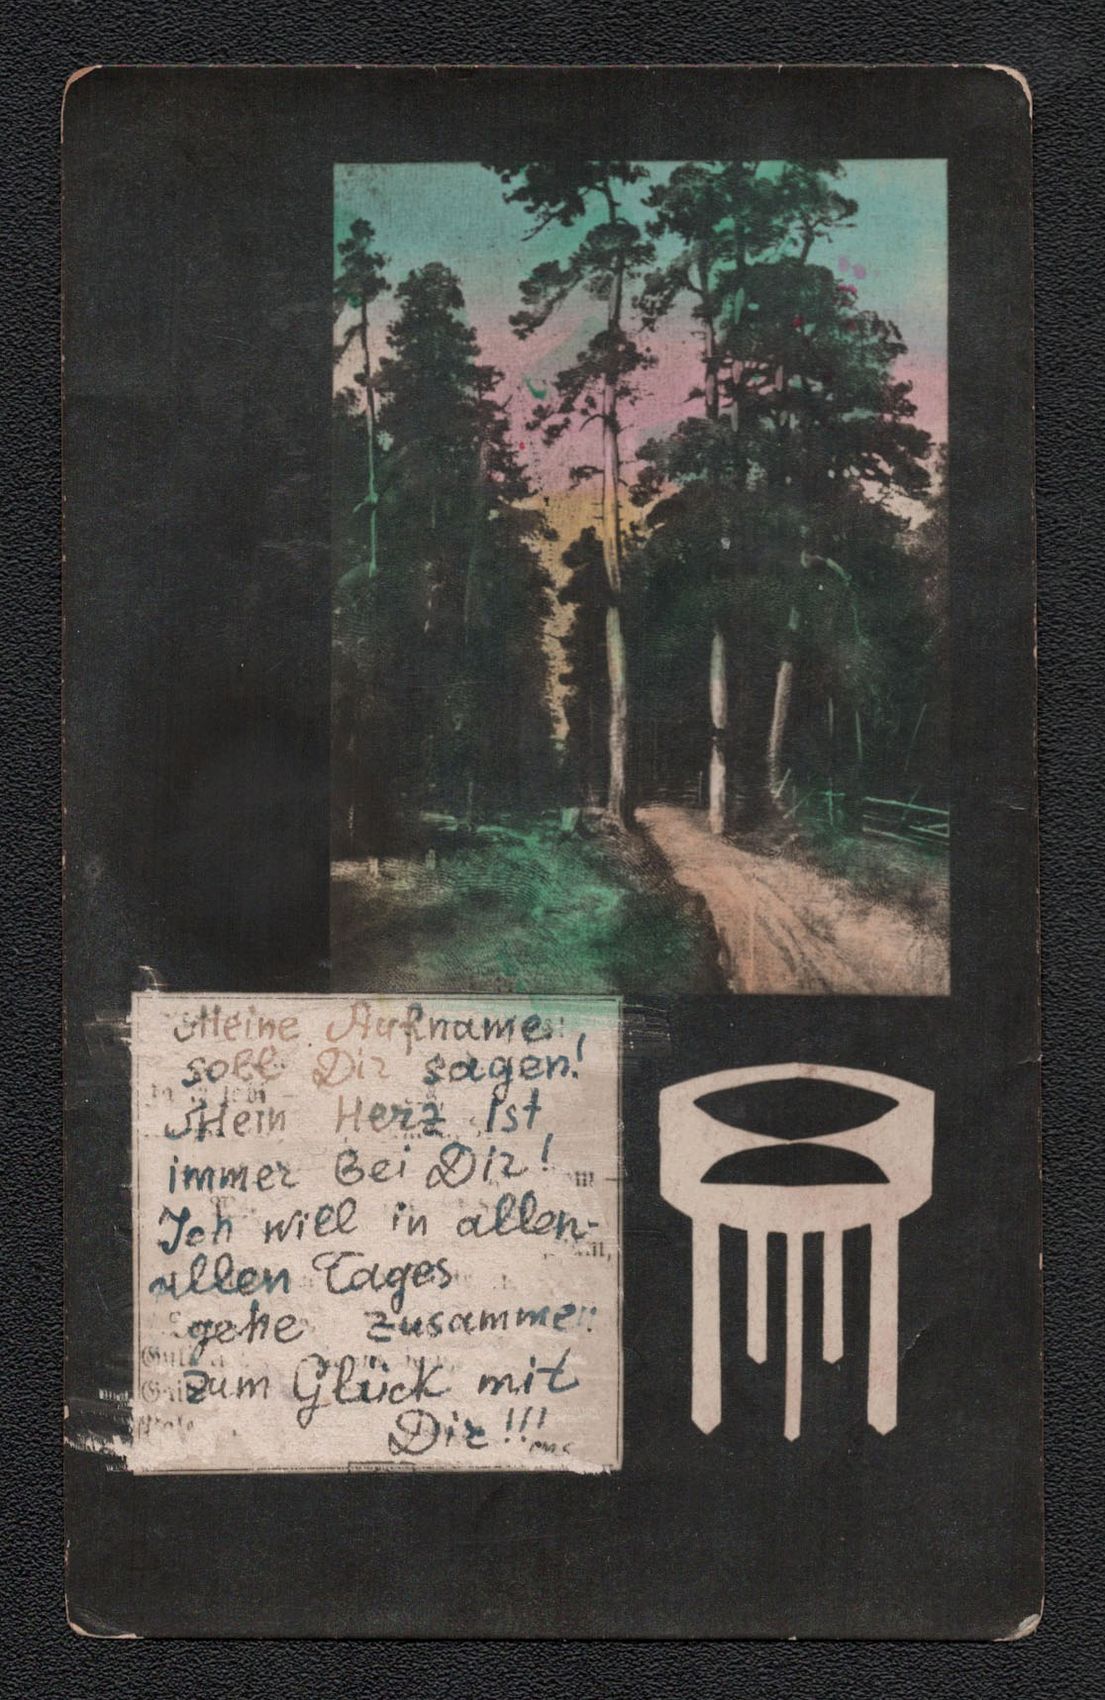 Meine Aufname
soll Dir sagen!
Mein Herz ist
immer bei Dir!
Ich will in allen-
allen Tages
gehe zusammen
zum Glück mit
Dir!!!